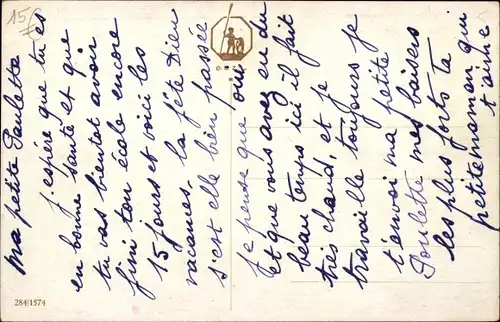 ma petite Paulette
j'espère que tu es
en bonne santé et que
tu vas bientot avoir
fini ton école encore
15 jours et voici les
vacances. la fête Dieu
s'est elle bien passée
je pense que oui
et que vous avez eu du
beau temps ici il fait
très chaud, et je
travaille toujours je
t'envoi ma petite
Poulette mes baisers
les plus forts ta
petite maman qui
t'aime
284/1574